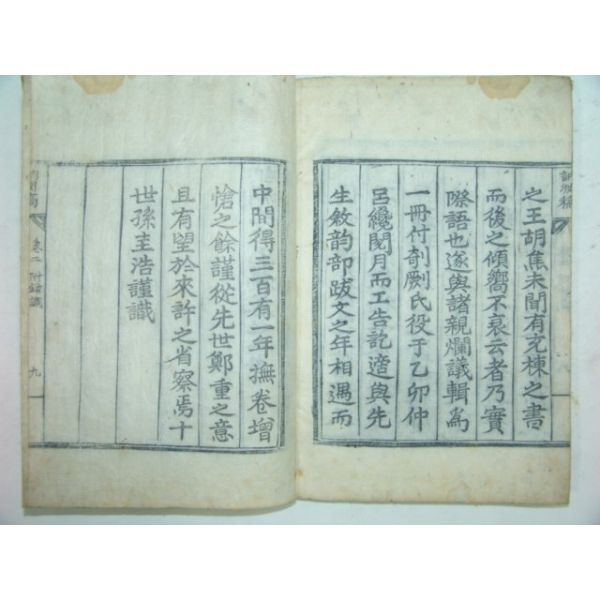 之王胡焦未聞有充棟之書
而後之傾嚮不衰云者乃實
際語也遂與諸親爛議輯爲
一冊付剞劂氏役于乙卯仲
呂纔閱月而工告訖適與先
生敘韵部跋文之年相遇而
中間得三百有一年撫卷增
愴之餘謹從先世鄭重之意
且有望於來許之省察焉十
世孫圭浩謹識
卷二 附錄識
九